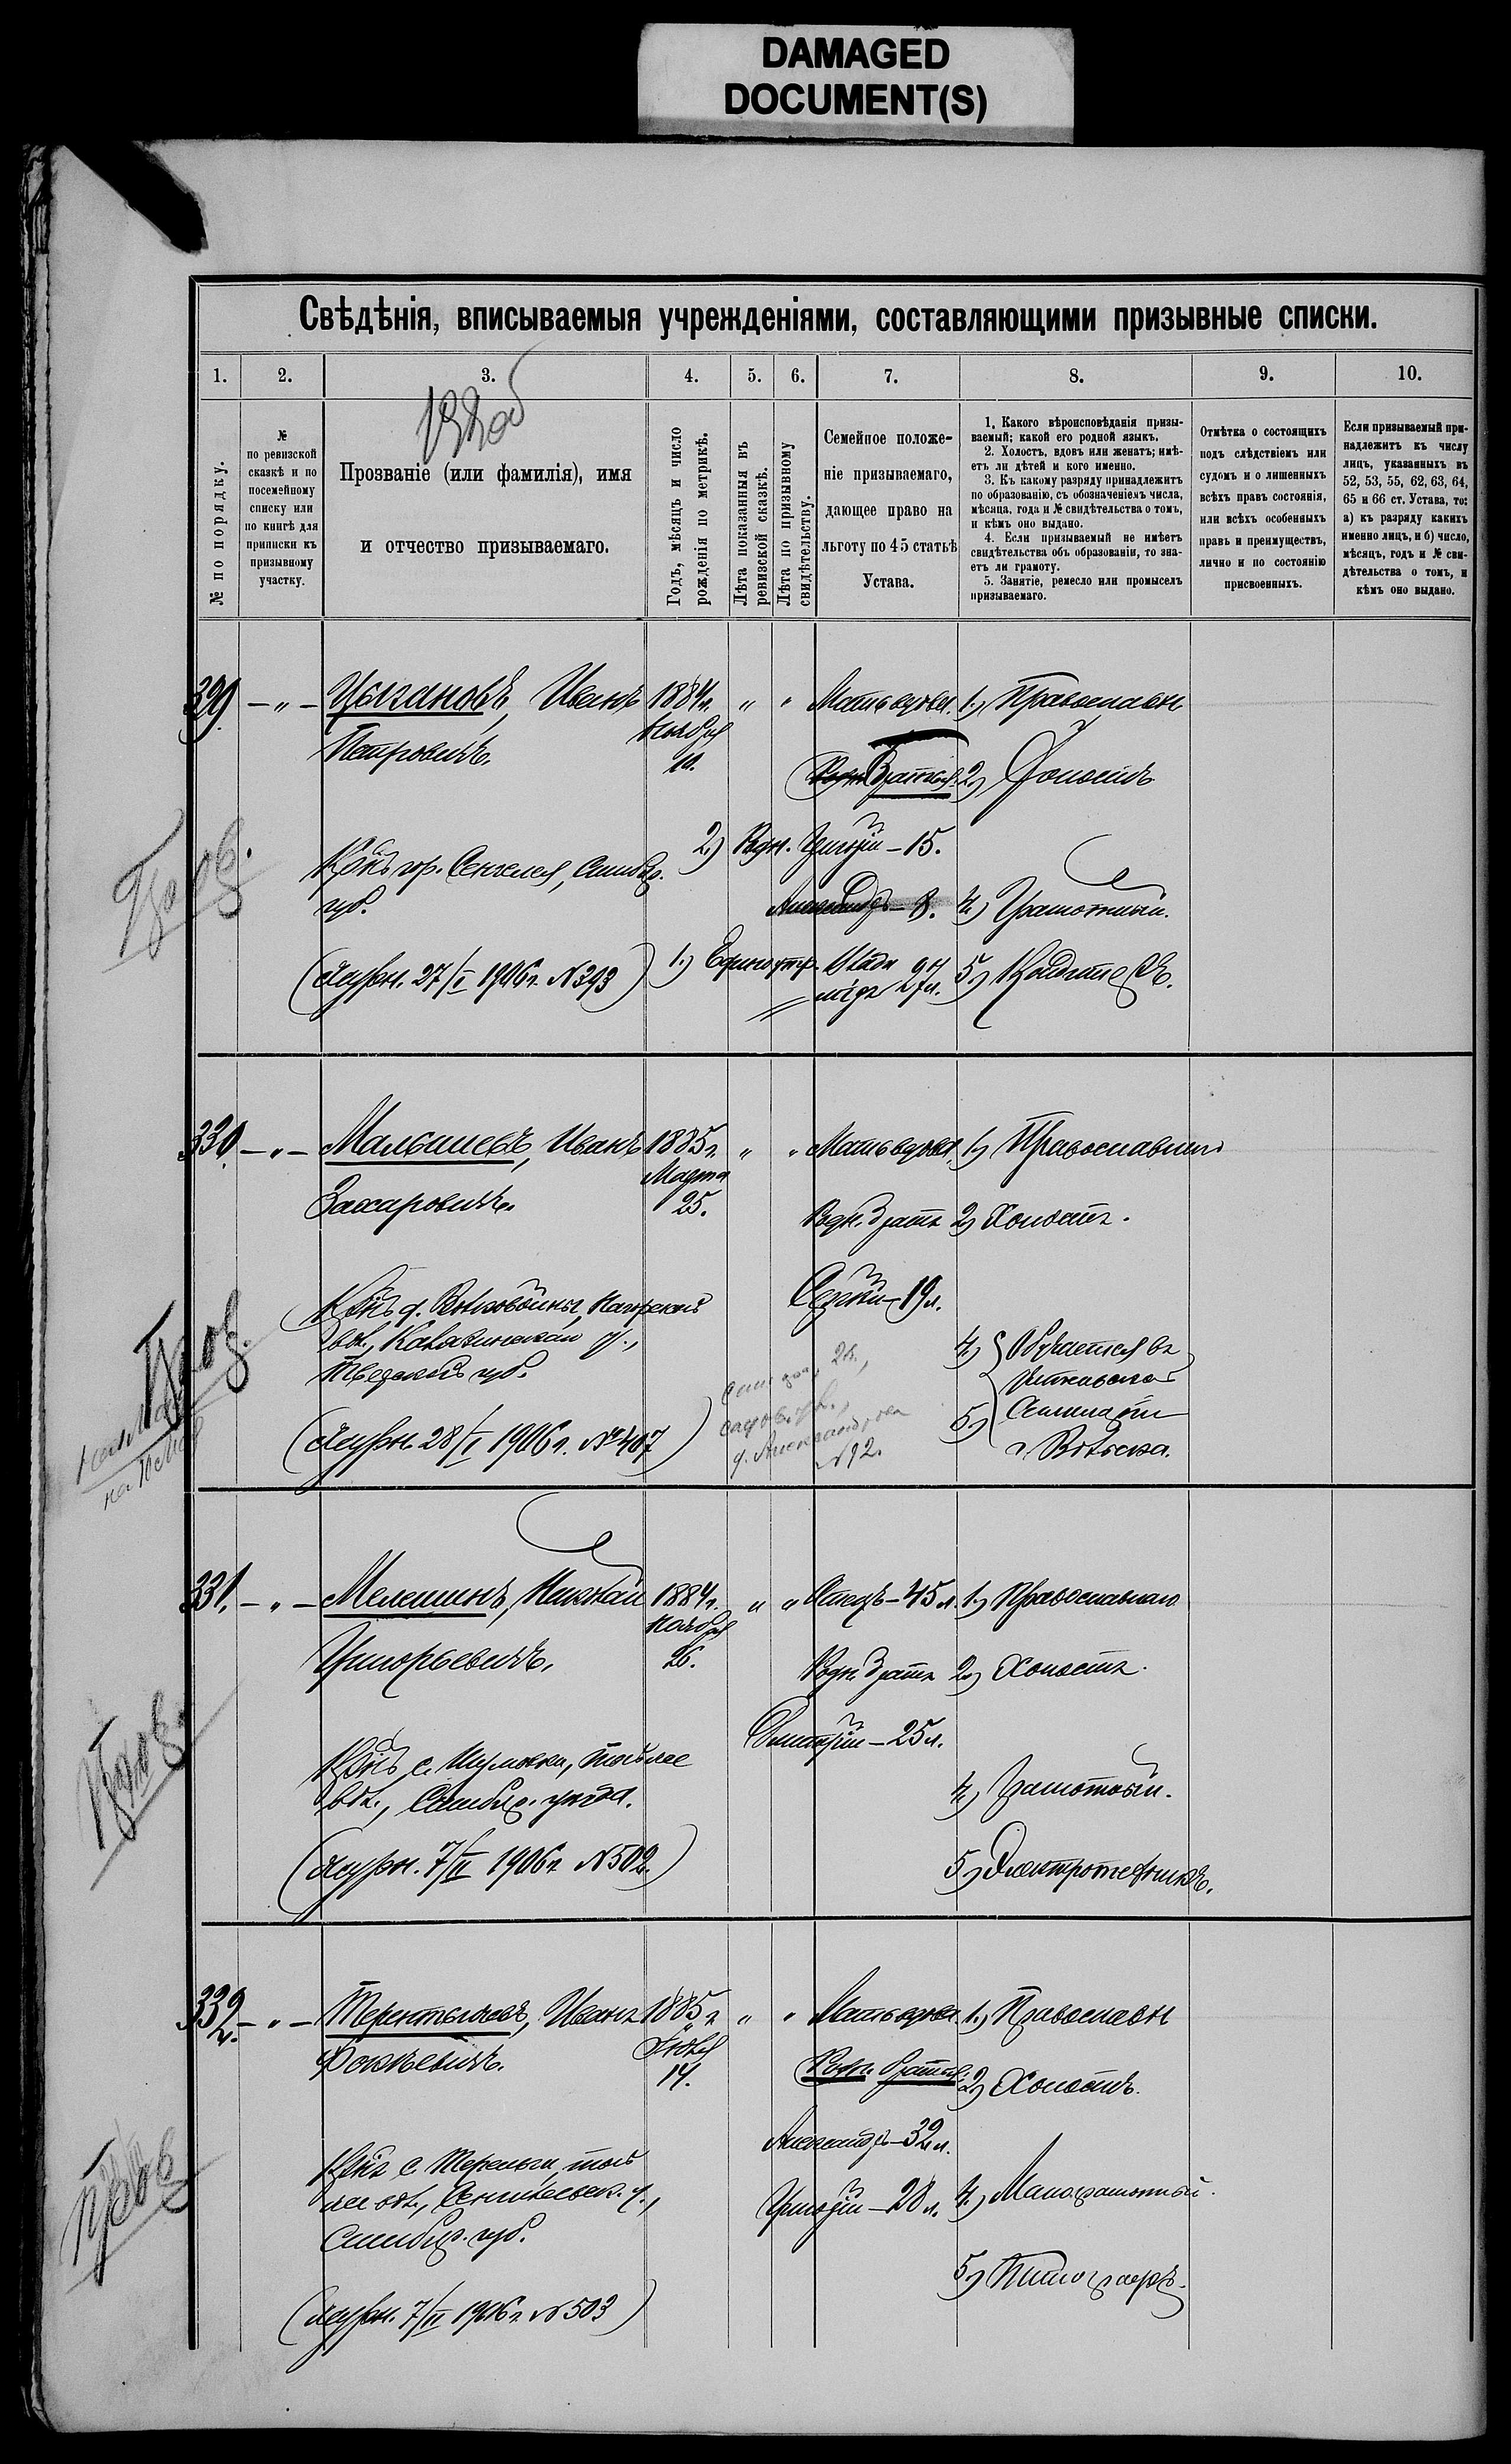 DAMAGED
DOCUMENT(S)
Свѣдѣнія, вписываемыя учрежденіями, составляющими призывные списки.
1. 2. 3. 4. 5. 6. 7. 8. 9. 10.
№ по порядку.
№
по ревизской
сказкѣ и по
посемейному
списку или
по книгѣ для
приписки къ
призывному
участку.
Прозваніе (или фамилія), имя
и отчество призываемаго.
Годъ, мѣсяцъ и число
рожденія по метрикѣ.
Лѣта показанныя въ
ревизской сказкѣ.
Лѣта по призывному
свидѣтельству.
Семейное положе-
ніе призываемаго,
дающее право на
льготу по 45 статьѣ
Устава.
1. Какого вѣроисповѣданія призы-
ваемый; какой его родной языкъ.
2. Холостъ, вдовъ или женатъ; имѣ-
етъ ли дѣтей и кого именно.
3. Къ какому разряду принадлежитъ
по образованію, съ обозначеніемъ числа,
мѣсяца, года и № свидѣтельства о томъ,
и кѣмъ оно выдано.
4. Если призываемый не имѣетъ
свидѣтельства объ образованіи, то зна-
етъ ли грамоту.
5. Занятіе, ремесло или промыселъ
призываемаго.
Отмѣтка о состоящихъ
подъ слѣдствіемъ или
судомъ и о лишенныхъ
всѣхъ правъ состоянія,
или всѣхъ особенныхъ
правъ и преимуществъ,
лично и по состоянію
присвоенныхъ.
Если призываемый при-
надлежитъ къ числу
лицъ, указанныхъ въ
52, 53, 55, 62, 63, 64,
65 и 66 ст. Устава, то:
а) къ разряду какихъ
именно лицъ, и б) число,
мѣсяцъ, годъ и № сви-
дѣтельства о томъ, и
кѣмъ оно выдано.
329. - " - Цыгановъ, Иванъ 1884 г. " " Мать вдова. 1.) Православн
Петровичъ. Ноября
10. Братья: 2.) Холостъ
2.) Родн. Григорій - 15.
Кр-нъ гор. Сенгилея, Симбир.
губ. Александръ - 8. 4.) Грамотный.
(Журн. 27/I 1906 г. № 393) 1.) Единоутр. 27 л. 5.)
330. - " - Малышевъ, Иванъ 1885 г. " " Мать вдова, 1.) Православный
Захаровичъ. Марта
25. Родн. братъ 2.) Холостъ.
Сергѣй - 19 л.
Тверской губ.
4.) Обучается въ
5.) Семинаріи
(Журн. 28/I 1906 г. № 407)
№ 92.
331. - " - Мелешинъ, Николай 1884 г. " " Отецъ - 45 л. 1.) Православнаго
Григорьевичъ. Ноября
26. Родн. братъ 2.) Холостъ.
Дмитрій - 25 л.
Кр-нъ с. Шумовки, той же
вол., Симбир. уѣзда. 4.) Грамотный.
(Журн. 7/II 1906 г. № 502.) 5.) Электротехникъ.
332. - " - Терентьевъ, Иванъ 1885 г. " " Мать вдова. 1.) Православн
Фокѣевичъ. Іюля
14. Родн. братья: 2.) Холостъ.
Александръ - 32 л.
Кр-нъ с. Тереньги, той
же вол., Сенгилеевск. у., Григорій - 28 л. 4.) Малограмотный.
Симбир. губ.
5.)
(Журн. 7/II 1906 г. № 503)